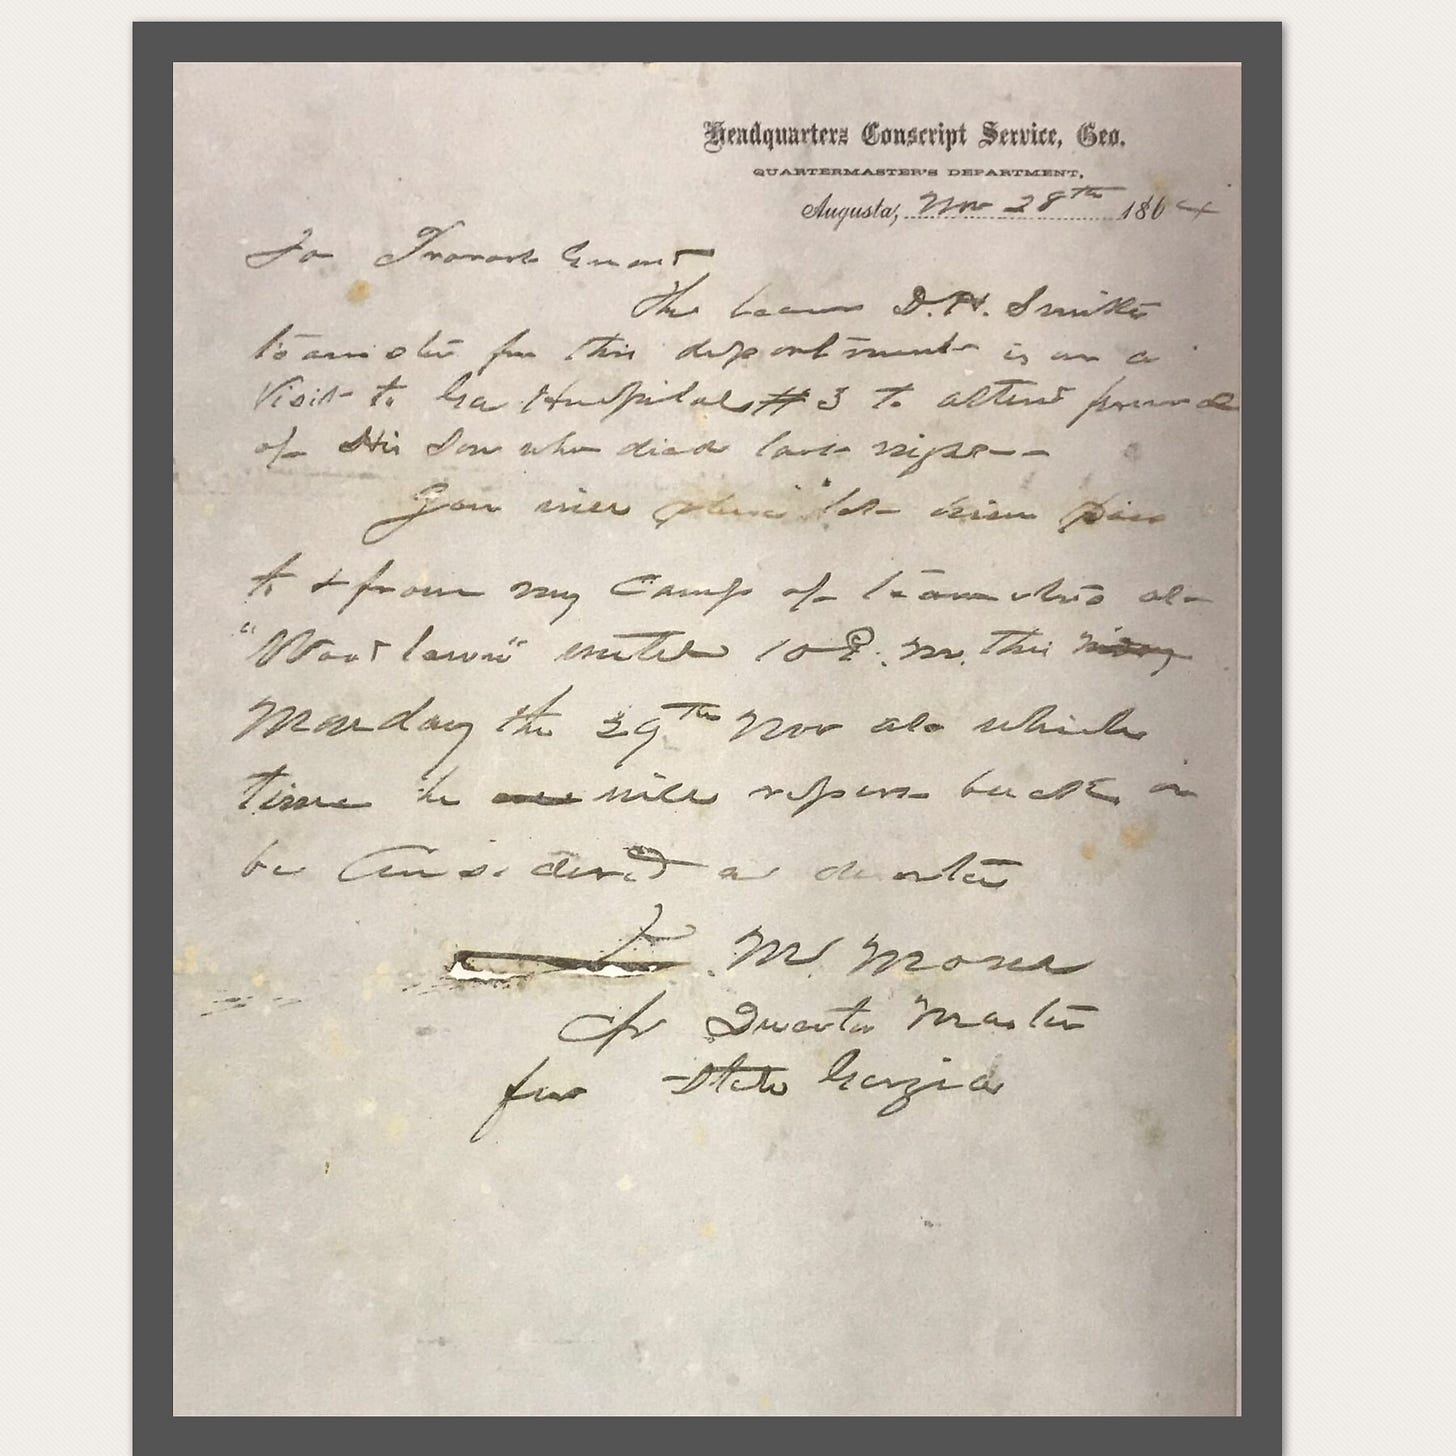 Headquarters Conscript Service, Geo.
QUARTERMASTER'S DEPARTMENT,
Augusta, Nov 28th 1864
To Provost Guard
The bearer D. H. Smith
teamster for this department is on a
visit to Ga Hospital #3 to attend funeral
of His Son who died last night
You will please let him pass
to & from my Camp of teamsters at
"Wood lawn" until 10 P. M. this
Monday the 29th Nov at which
time he will report back or
be Considered a deserter
M.
Qr Quarter Master
for State Georgia